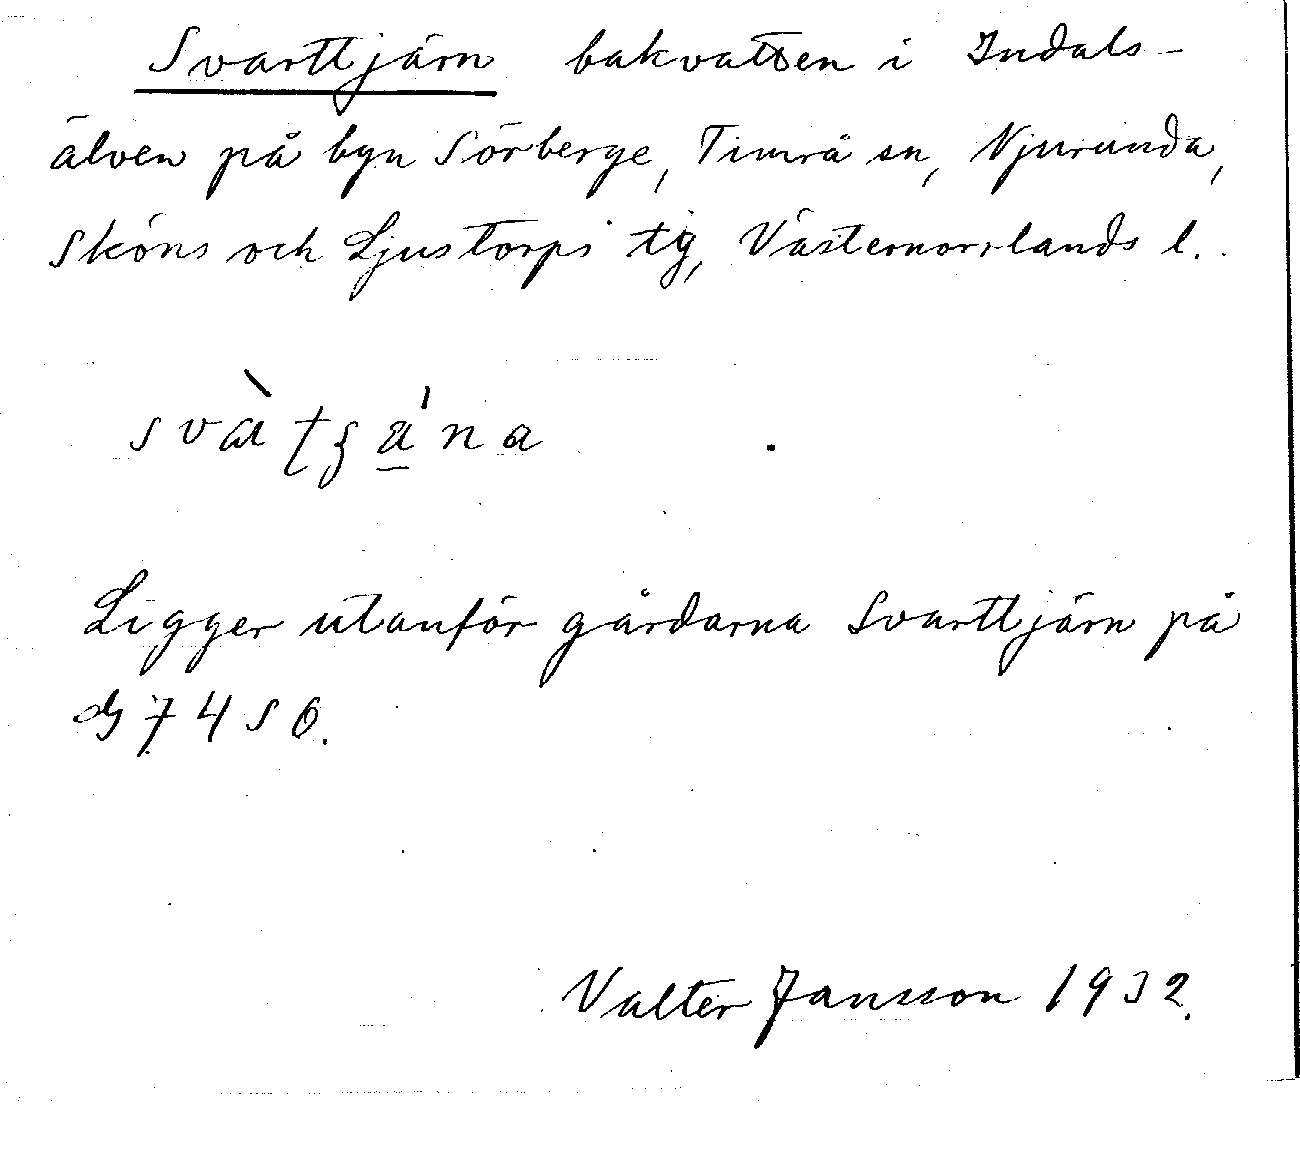 Svarttjärn bakvatten i Indals-
älven på byn Sörberge, Timrå sn, Njurunda,
Sköns och Ljustorps tg, Västernorrlands l.
Ligger utanför gårdarna Svarttjärn på
Valter Jansson 1932.